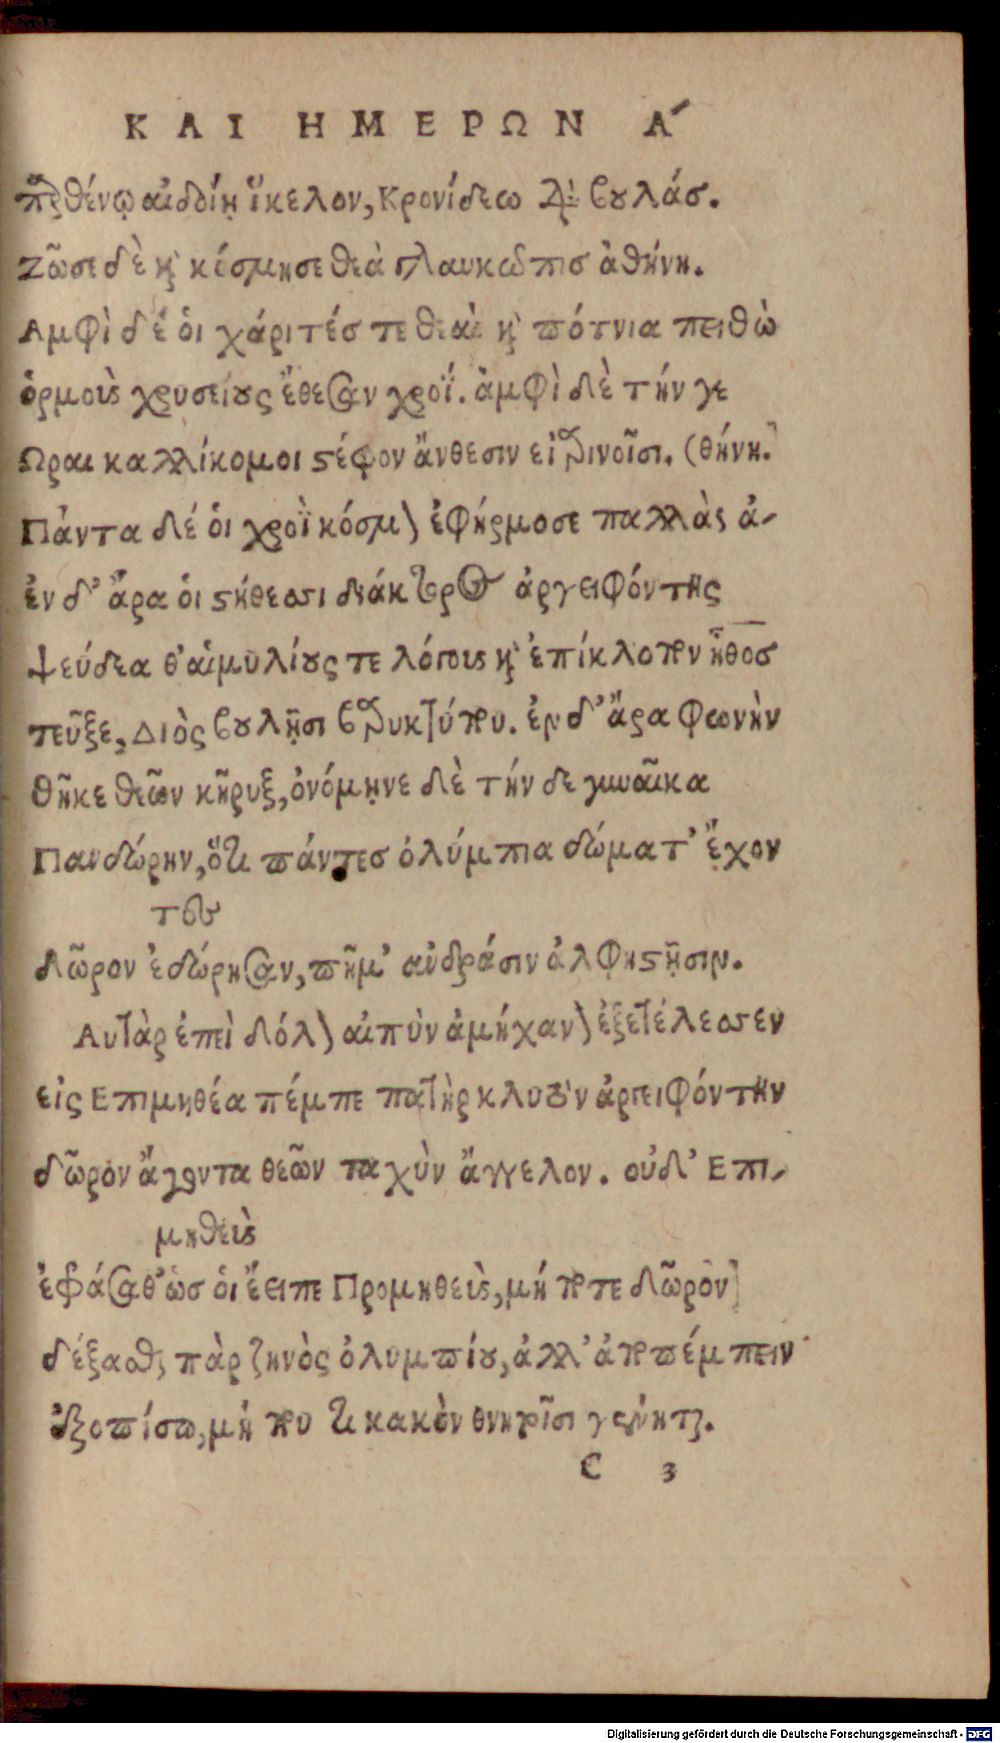 ΚΑΙ ΗΜΕΡΩΝ Α´
παρθένῳ αἰδοίῃ ἴκελον, Κρονίδεω διὰ βουλάσ.
Ζῶσε δὲ καὶ κόσμησε θεὰ γλαυκῶπισ ἀθήνη.
Αμφὶ δέ ὁι χάριτέσ τε θεαὶ καὶ πότνια πειθὼ
ὁρμοὺς χρυσείους ἔθεσαν χροΐ. ἀμφὶ δὲ τήν γε
Ωραι καλλίκομοι στέφον ἄνθεσιν εἰαρινοῖσι. (θήνη.
Πάντα δέ ὁι χροῒ κόσμον ἐφήρμοσε παλλὰς ἀ-
ἐν δ' ἄρα ὁι στήθεσσι διάκτορος ἀργειφόντης
ψεύδεα θ' αἱμυλίους τε λόγους καὶ ἐπίκλοπον ἦθοσ
τεῦξε, Διὸς βουλῇσι βαρυκτύπου. ἐν δ' ἄρα φωνὴν
Θῆκε θεῶν κῆρυξ, ὀνόμῃνε δὲ τήν δε γυναῖκα
Πανδώρην, ὅτι πάντεσ ὀλύμπια δώματ' ἔχον
τες
δῶρον ἐδώρησαν, πῆμ' ἀνδράσιν ἀλφηστῇσιν.
Αυτὰρ ἐπεὶ δόλον αἰπὺν ἀμήχανον ἐξετέλεσσεν
εἰς Επιμηθέα πέμπε πατὴρ κλυτὸν ἀργειφόντην
δῶρον ἄγοντα θεῶν ταχὺν ἄγγελον. οὐδ' Επι-
μηθεὺς
ἐφράσαθ' ὡσ ὁι ἔειπε Προμηθεὺς, μή ποτε δῶρον
δέξασθαι παρ ζηνὸς ὀλυμπίου, ἀλλ' ἀποπέμπειν
ἐξοπίσω, μή που τι κακὸν θνητοῖσι γένηται.
C 3
Digitalisierung gefördert durch die Deutsche Forschungsgemeinschaft - DFG